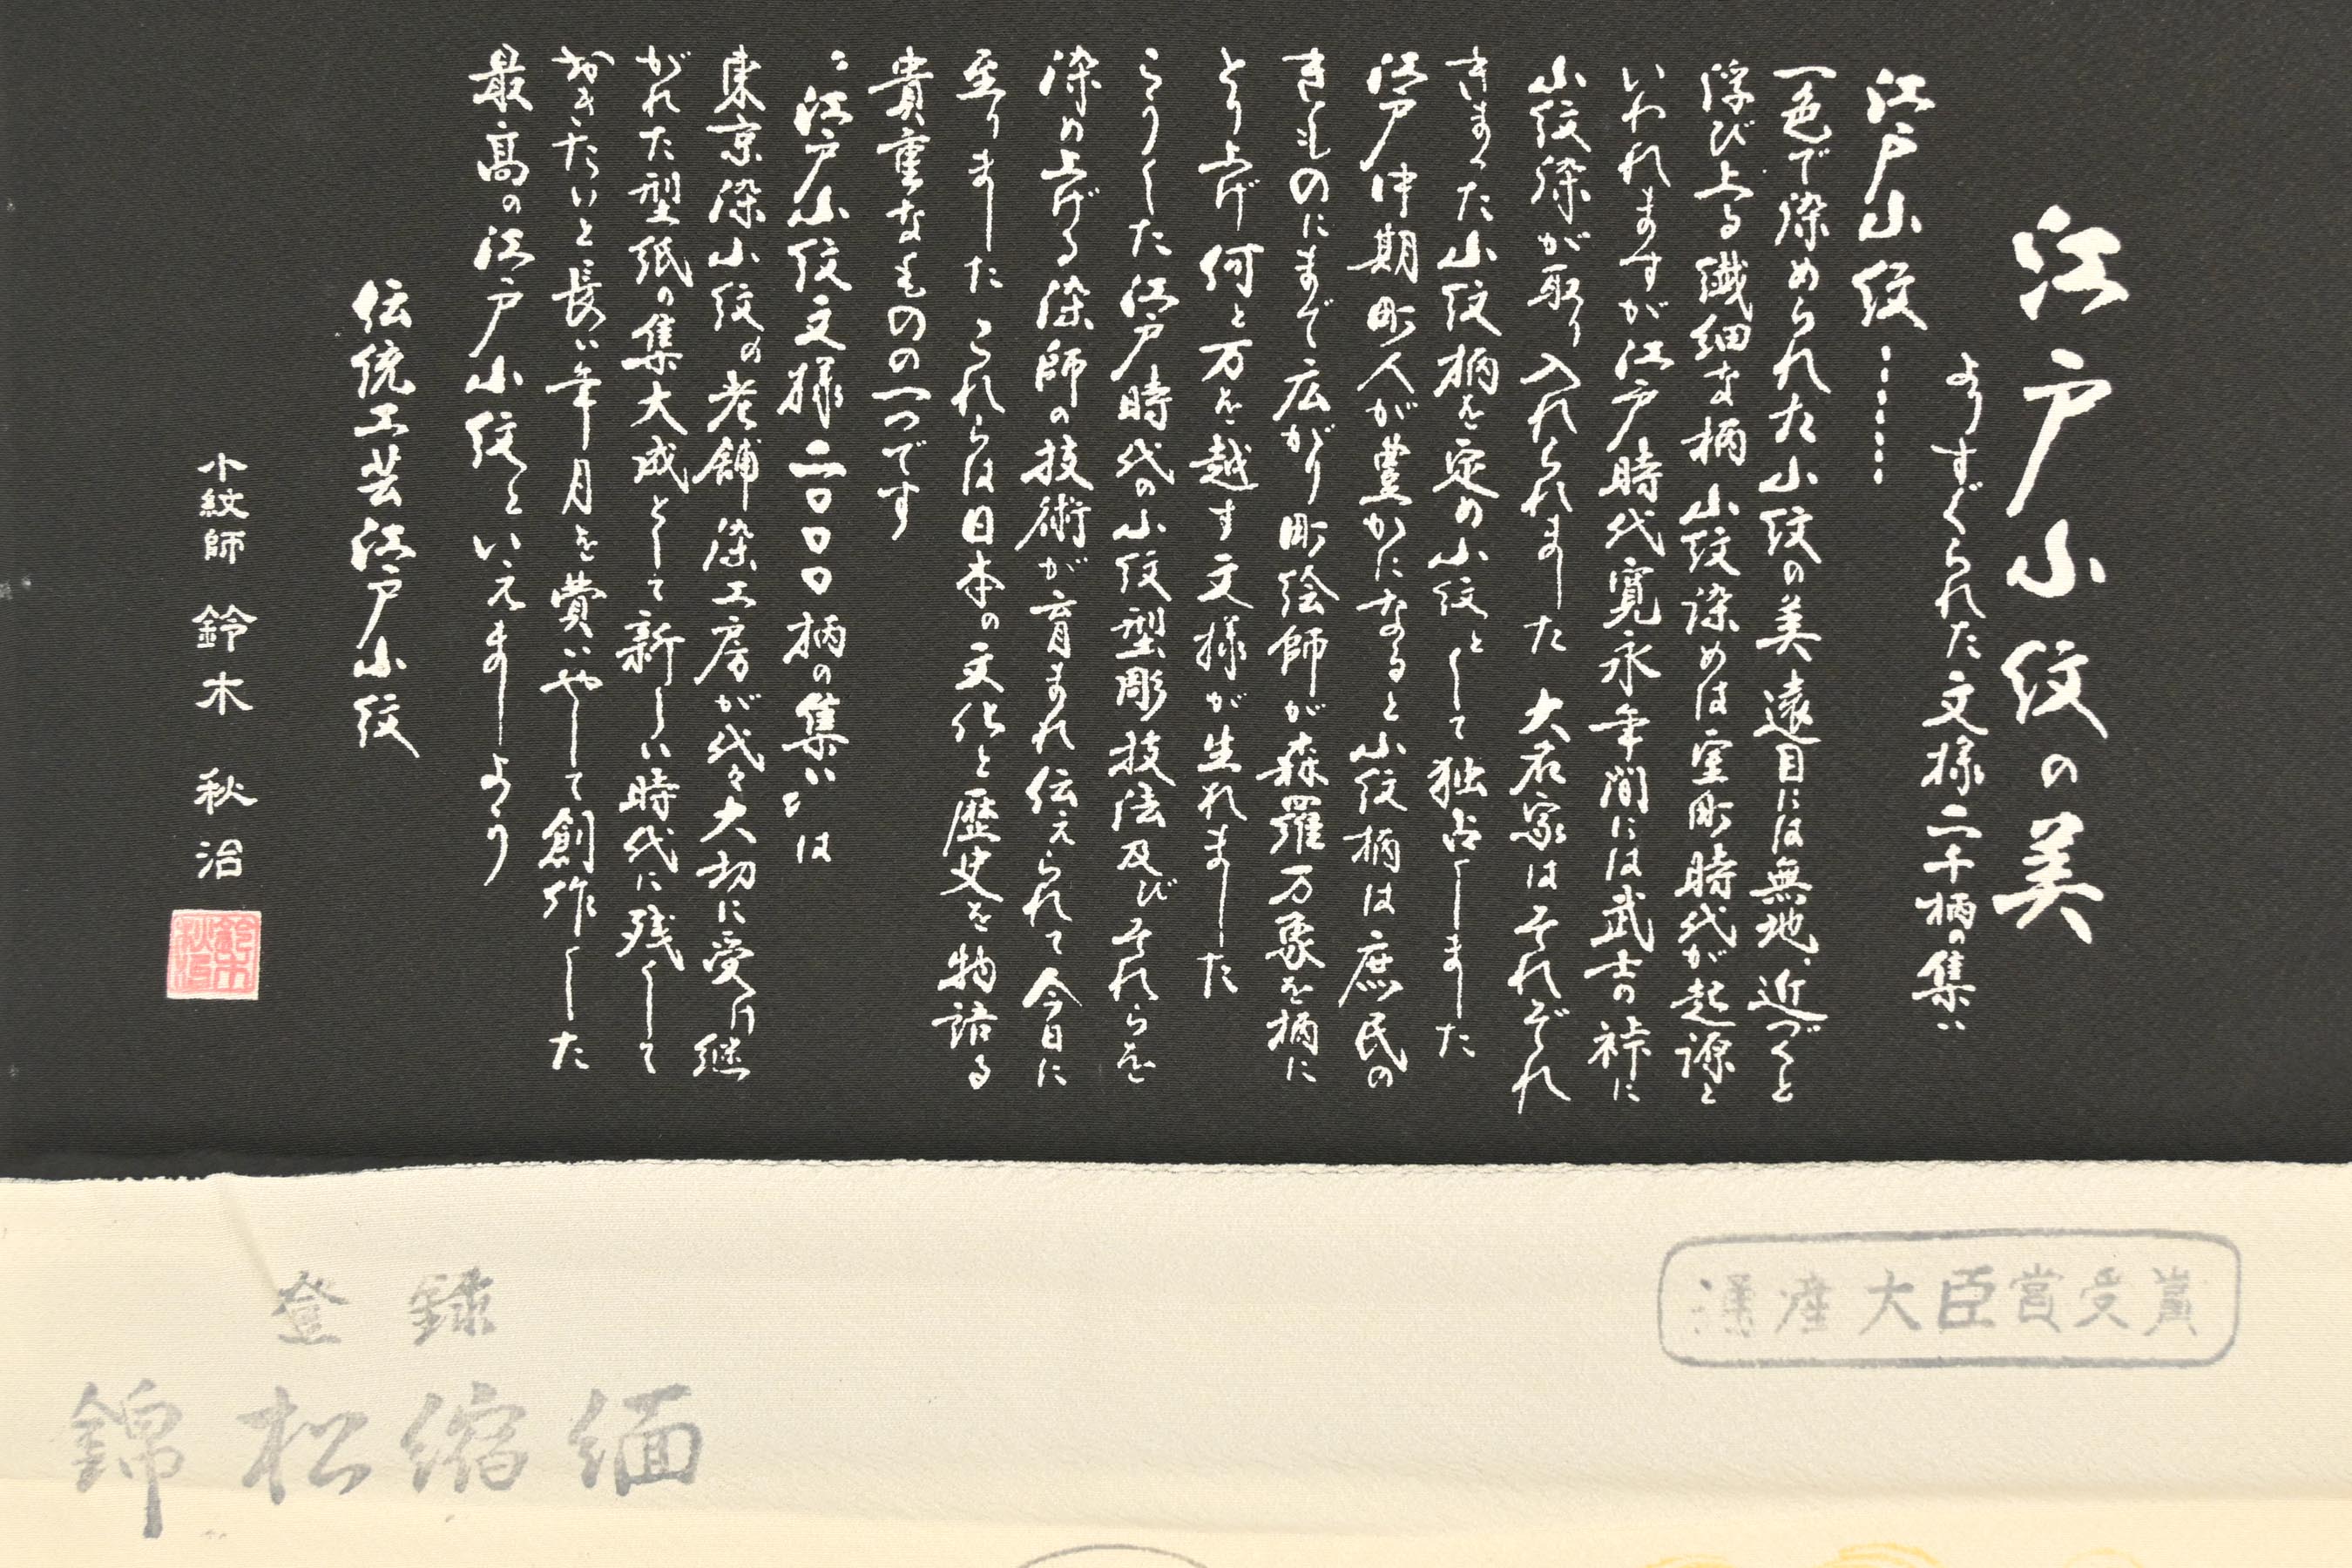 江戸小紋の美
よりすぐられた文様二千柄の集い
江戸小紋……
一色で染められた小紋の美 遠目には無地、近づくと
浮び上る繊細な柄 小紋染めは室町時代が起源と
いわれますが江戸時代寛永年間には武士の裃に
小紋染が取り入れられました 大名家はそれぞれ
きまった小紋柄を定め小紋として独占しました
江戸中期町人が豊かになると小紋柄は庶民の
きものにまで広がり町絵師が森羅万象を柄に
とり上げ何と万を越す文様が生れました
こうした江戸時代の小紋型彫技法及びそれらを
染め上げる染師の技術が育まれ伝えられて今日に
至りました これらは日本の文化と歴史を物語る
貴重なものの一つです
〝江戸小紋文様二〇〇〇柄の集い〟は
東京染小紋の老舗染工房が代々大切に受け継
がれた型紙の集大成として新しい時代に残して
おきたいと長い年月を費いやして創作した
最高の江戸小紋といえましょう
伝統工芸江戸小紋
小紋師 鈴木 秋治
鈴木秋治
通産大臣賞受賞
登録
錦松縮緬